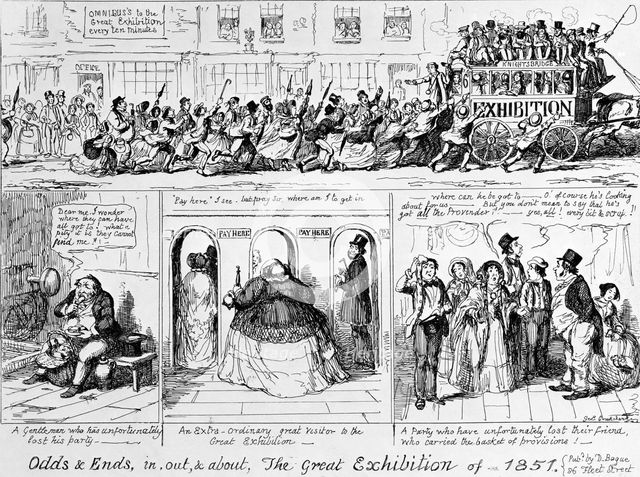 OMNIBUS'S to the
Great Exhibition
every ten minutes
OFFICE
KNIGHTSBRIDGE
EXHIBITION
Dear me, I wonder
where they can have
all got to! what a
pity it is they cannot
find me!!
"Pay here" I see - but pray Sir, where am I to get in
PAY HERE
PAY HERE
PA
where can he be got to — O! of course he's looking
about for us — But you don't mean to say that he's
got all the Provender!! — yes, all! every bit & scrap.!!
Geo. Cruikshank
A Gentleman who has unfortunately
lost his party —
An Extra-ordinary great Visitor to the
Great Exhibition —
A Party who have unfortunately lost their friend,
who carried the basket of provisions! —
Odds & Ends, in, out, & about, The Great Exhibition of 1851.
Pubd by D. Bogue
86 Fleet Street